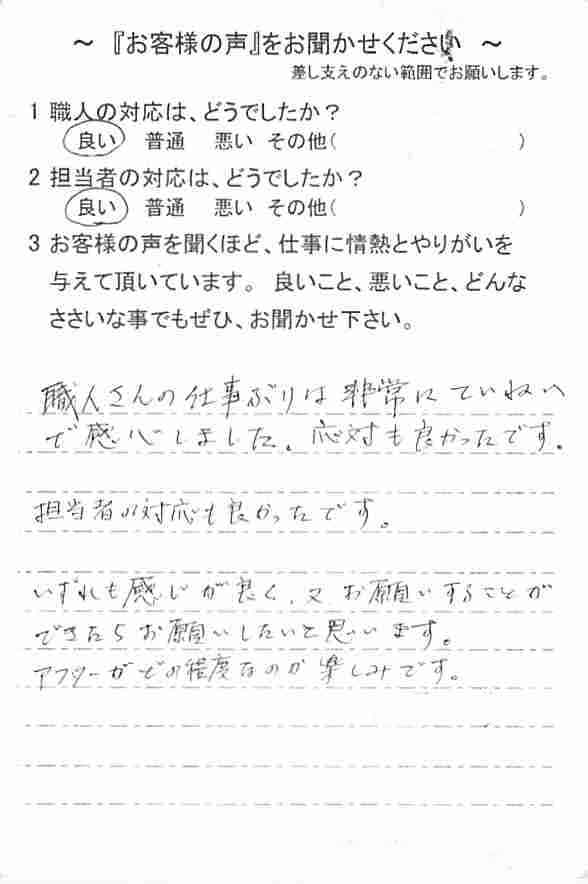 ～ 『お客様の声』をお聞かせください ～
差し支えのない範囲でお願いします。
1 職人の対応は、どうでしたか？
良い 普通 悪い その他( )
2 担当者の対応は、どうでしたか？
良い 普通 悪い その他( )
3 お客様の声を聞くほど、仕事に情熱とやりがいを
与えて頂いています。 良いこと、悪いこと、どんな
ささいな事でもぜひ、お聞かせ下さい。
職人さんの仕事ぶりは非常にていねい
で感心しました。応対も良かったです。
担当者の対応も良かったです。
いずれも感じが良く、又お願いすることが
できたらお願いしたいと思います。
アフターがどの程度なのか楽しみです。